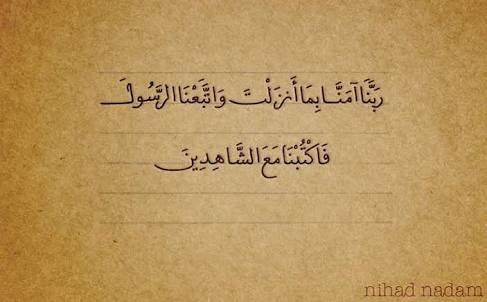 رَبَّنَا آمَنَّا بِمَا أَنزَلْتَ وَاتَّبَعْنَا الرَّسُولَ
فَاكْتُبْنَا مَعَ الشَّاهِدِينَ
nihad nadam